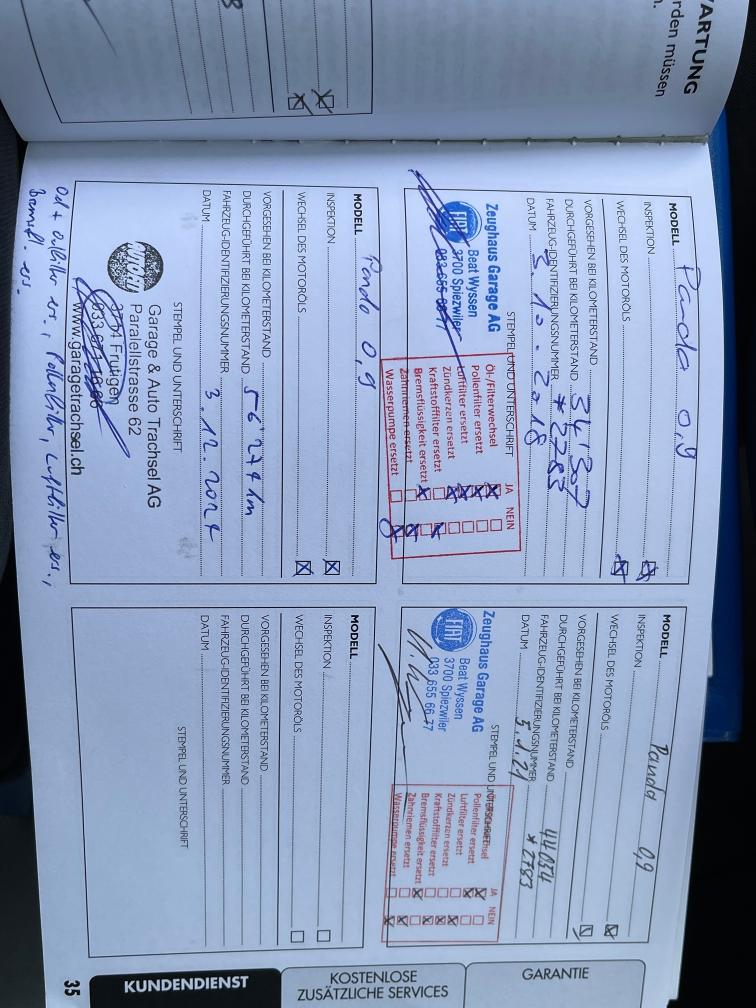 WARTUNG
rden müssen
n.
MODELL Panda 0,9
INSPEKTION
WECHSEL DES MOTORÖLS
VORGESEHEN BEI KILOMETERSTAND
DURCHGEFÜHRT BEI KILOMETERSTAND 34'307
FAHRZEUG-IDENTIFIZIERUNGSNUMMER *2783
DATUM 3.10.2018
STEMPEL UND UNTERSCHRIFT
Zeughaus Garage AG
FIAT
Beat Wyssen
3700 Spiezwiler
033 655 66 77
JA NEIN
Öl-/Filterwechsel
Pollenfilter ersetzt
Luftfilter ersetzt
Zündkerzen ersetzt
Kraftstofffilter ersetzt
Bremsflüssigkeit ersetzt
Zahnriemen ersetzt
Wasserpumpe ersetzt
MODELL Panda 0,9
INSPEKTION
WECHSEL DES MOTORÖLS
VORGESEHEN BEI KILOMETERSTAND
DURCHGEFÜHRT BEI KILOMETERSTAND 44054
FAHRZEUG-IDENTIFIZIERUNGSNUMMER *2783
DATUM 5.1.21
STEMPEL UND UNTERSCHRIFT
Zeughaus Garage AG
FIAT
Beat Wyssen
3700 Spiezwiler
033 655 66 77
JA NEIN
Pollenfilter ersetzt
Luftfilter ersetzt
Zündkerzen ersetzt
Kraftstofffilter ersetzt
Bremsflüssigkeit ersetzt
Zahnriemen ersetzt
Wasserpumpe ersetzt
MODELL Panda 0,9
INSPEKTION
WECHSEL DES MOTORÖLS
VORGESEHEN BEI KILOMETERSTAND
DURCHGEFÜHRT BEI KILOMETERSTAND 56'274 km
FAHRZEUG-IDENTIFIZIERUNGSNUMMER
DATUM 3.12.2024
STEMPEL UND UNTERSCHRIFT
Garage & Auto Trachsel AG
Parallelstrasse 62
3714 Frutigen
www.garagetrachsel.ch
Oel + oelfilter ers., Pollenfilter, Luftfilter ers.,
Bremsfl. ers.
MODELL
INSPEKTION
WECHSEL DES MOTORÖLS
VORGESEHEN BEI KILOMETERSTAND
DURCHGEFÜHRT BEI KILOMETERSTAND
FAHRZEUG-IDENTIFIZIERUNGSNUMMER
DATUM
STEMPEL UND UNTERSCHRIFT
GARANTIE
KOSTENLOSE
ZUSÄTZLICHE SERVICES
KUNDENDIENST
35